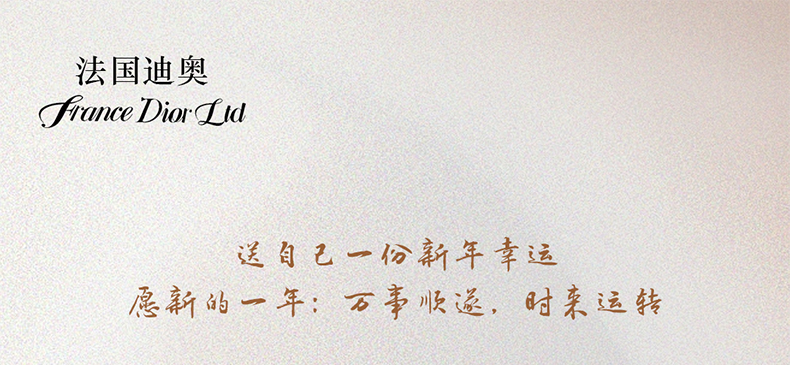 法国迪奥
France Dior Ltd
送自己一份新年幸运
愿新的一年：万事顺遂，时来运转